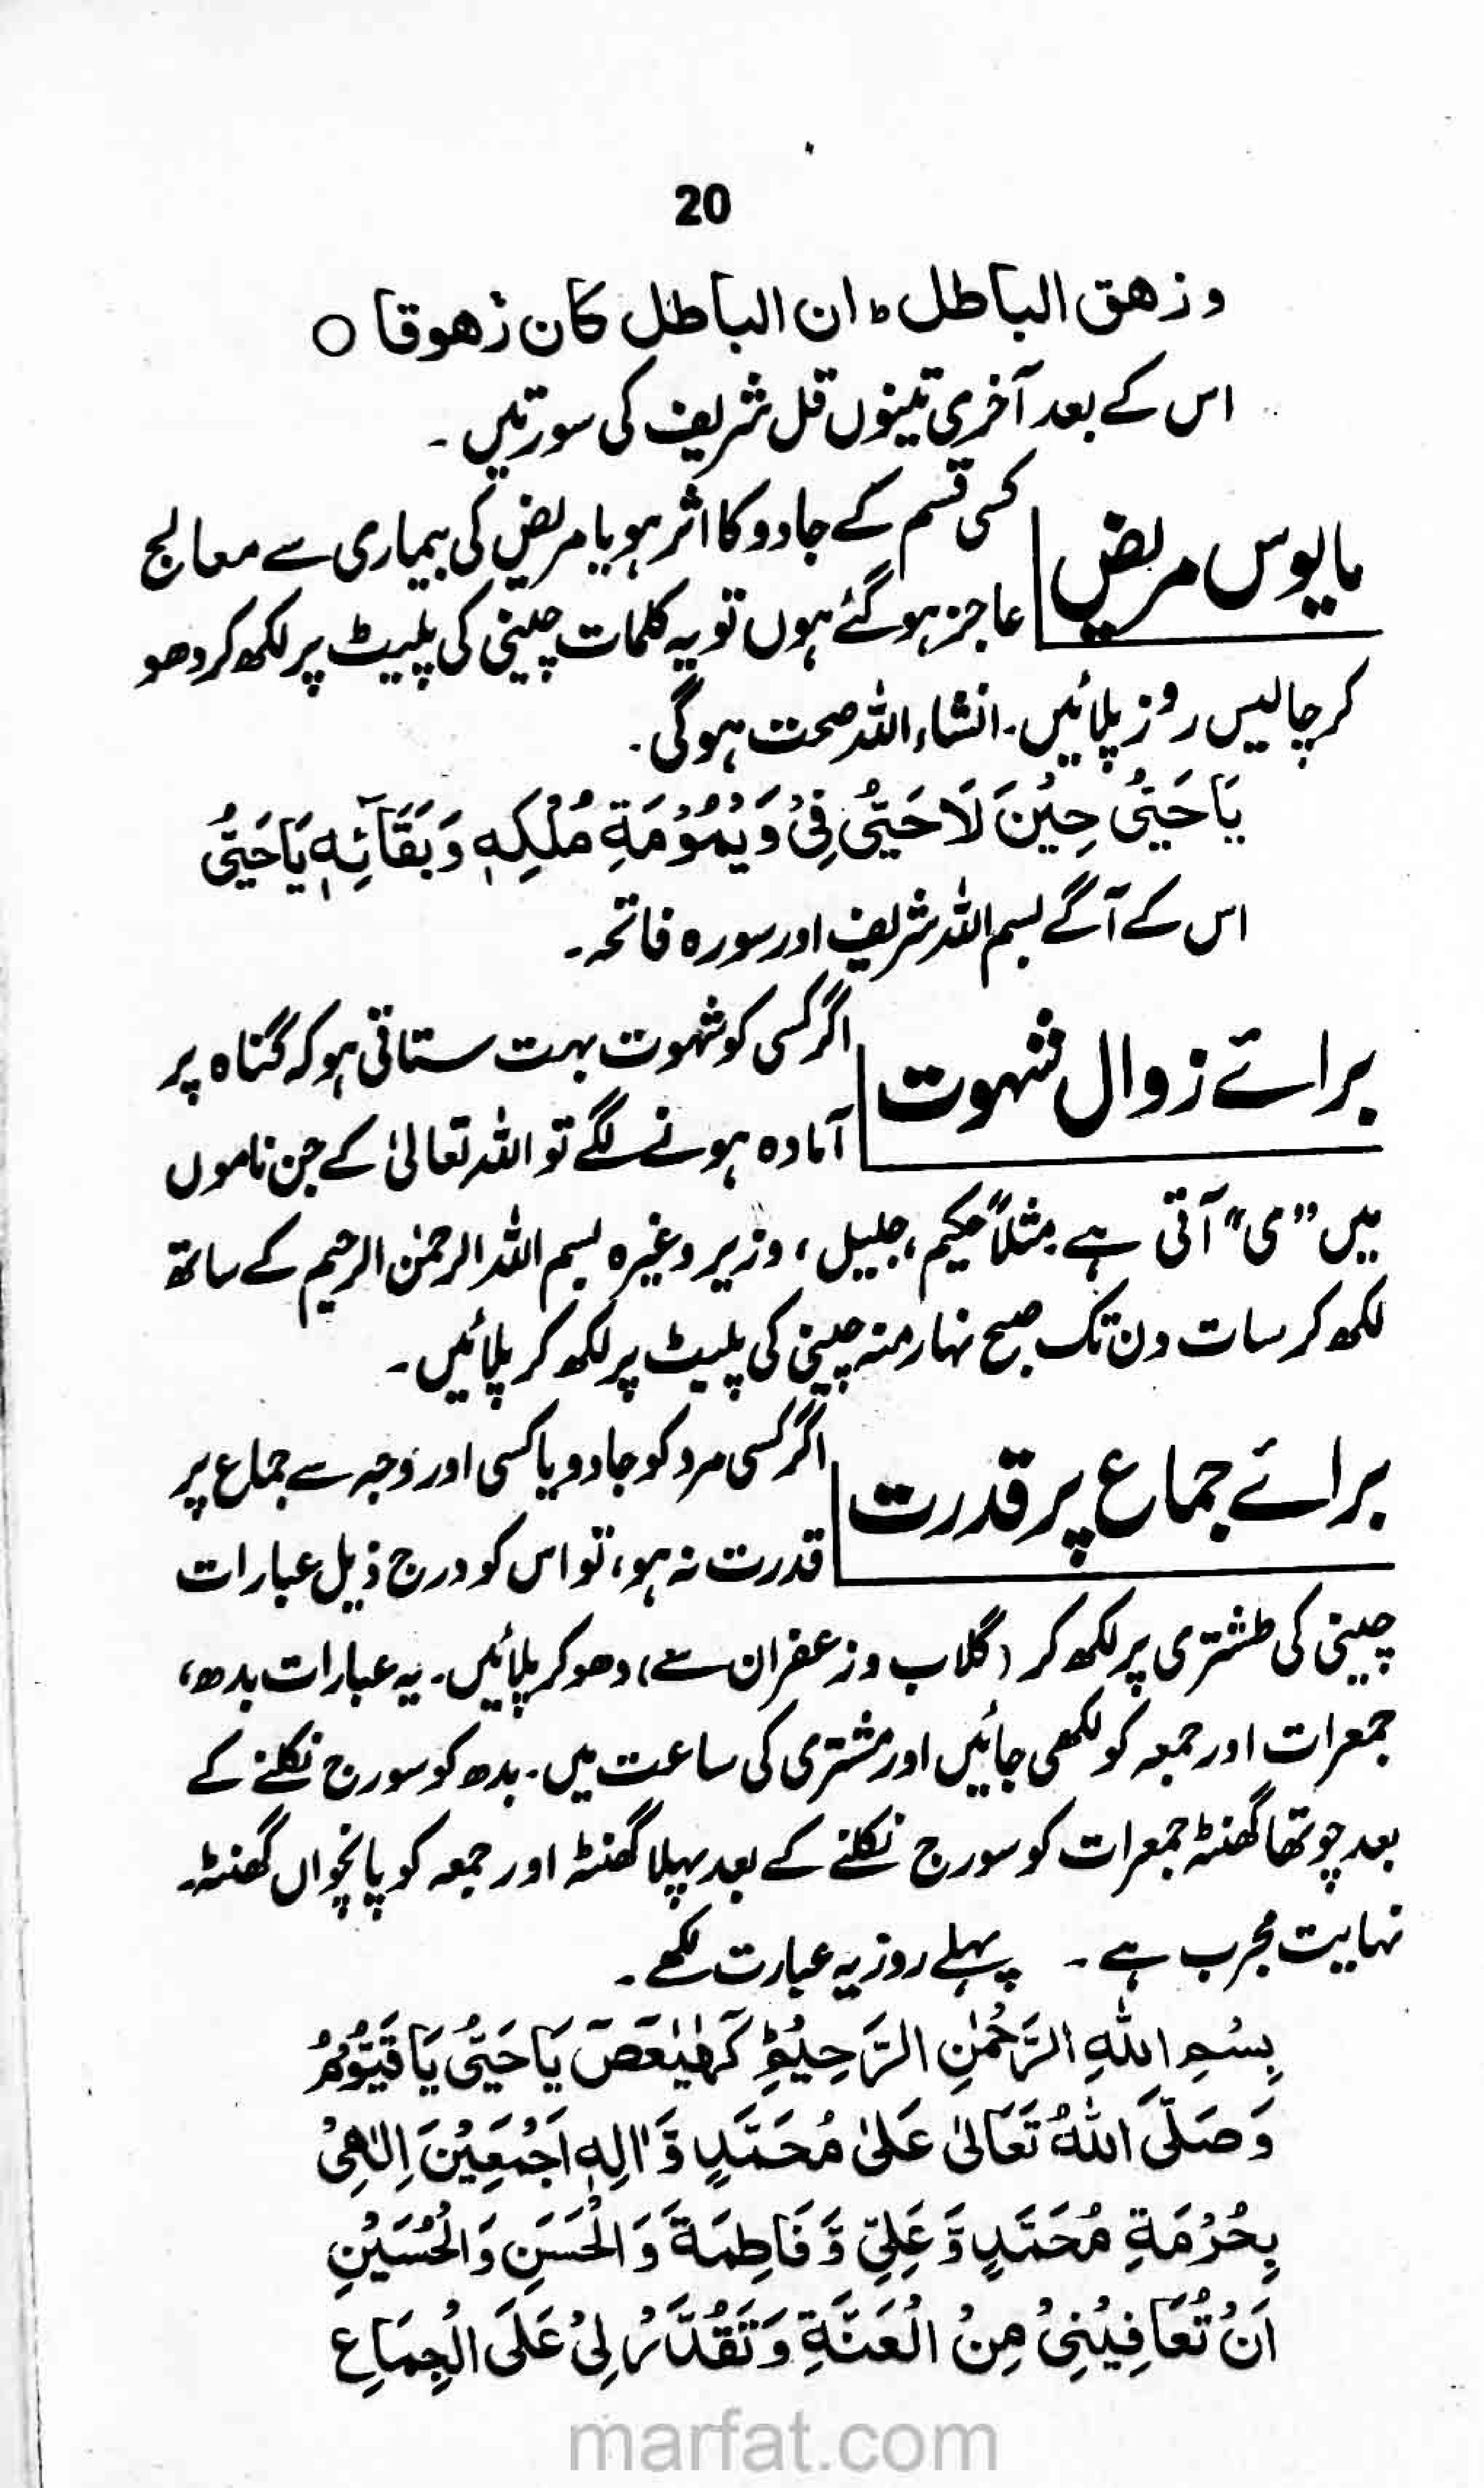 20
و زهق الباطل ط ان الباطل كان زهوقا ○
اس کے بعد آخری تینوں قل شریف کی سورتیں ۔
مایوس مریض
کسی قسم کے جادو کا اثر ہو یا مریض کی بیماری سے معالج
عاجز ہو گئے ہوں تو یہ کلمات چینی کی پلیٹ پر لکھ کر دھو
کر چالیس روز پلائیں۔ انشاء اللہ صحت ہوگی۔
يَا حَيُّ حِيْنَ لَا حَيُّ فِيْ دَيْمُوْمَةِ مُلْكِهٖ وَ بَقَآئِهٖ يَا حَيُّ
اس کے آگے بسم اللہ شریف اور سورہ فاتحہ۔
برائے زوال شہوت
اگر کسی کو شہوت بہت ستاتی ہو کہ گناہ پر
آمادہ ہونے لگے تو اللہ تعالیٰ کے جن ناموں
میں ”ی“ آتی ہے مثلاً حکیم، جلیل، وزیر وغیرہ بسم اللہ الرحمٰن الرحیم کے ساتھ
لکھ کر سات دن تک صبح نہار منہ چینی کی پلیٹ پر لکھ کر پلائیں۔
برائے جماع پر قدرت
اگر کسی مرد کو جادو یا کسی اور وجہ سے جماع پر
قدرت نہ ہو، تو اس کو درج ذیل عبارات
چینی کی طشتری پر لکھ کر (گلاب و زعفران سے) دھو کر پلائیں۔ یہ عبارات بدھ،
جمعرات اور جمعہ کو لکھی جائیں اور مشتری کی ساعت میں۔ بدھ کو سورج نکلنے کے
بعد چوتھا گھنٹہ جمعرات کو سورج نکلنے کے بعد پہلا گھنٹہ اور جمعہ کو پانچواں گھنٹہ۔
نہایت مجرب ہے ۔ پہلے روز یہ عبارت لکھے ۔
بِسْمِ اللهِ الرَّحْمٰنِ الرَّحِيْمِ كٓهٰيٰعٓصٓ يَا حَيُّ يَا قَيُّوْمُ
وَصَلَّى اللهُ تَعَالٰى عَلٰى مُحَمَّدٍ وَّ اٰلِهٖ اَجْمَعِيْنَ اِلٰهِيْ
بِحُرْمَةِ مُحَمَّدٍ وَّ عَلِيٍّ وَّ فَاطِمَةَ وَ الْحَسَنِ وَ الْحُسَيْنِ
اَنْ تُعَافِيْنِيْ مِنْ الْعَنَّةِ وَ تَقْدُرُ لِيْ عَلَى الْجِمَاعِ
marfat.com